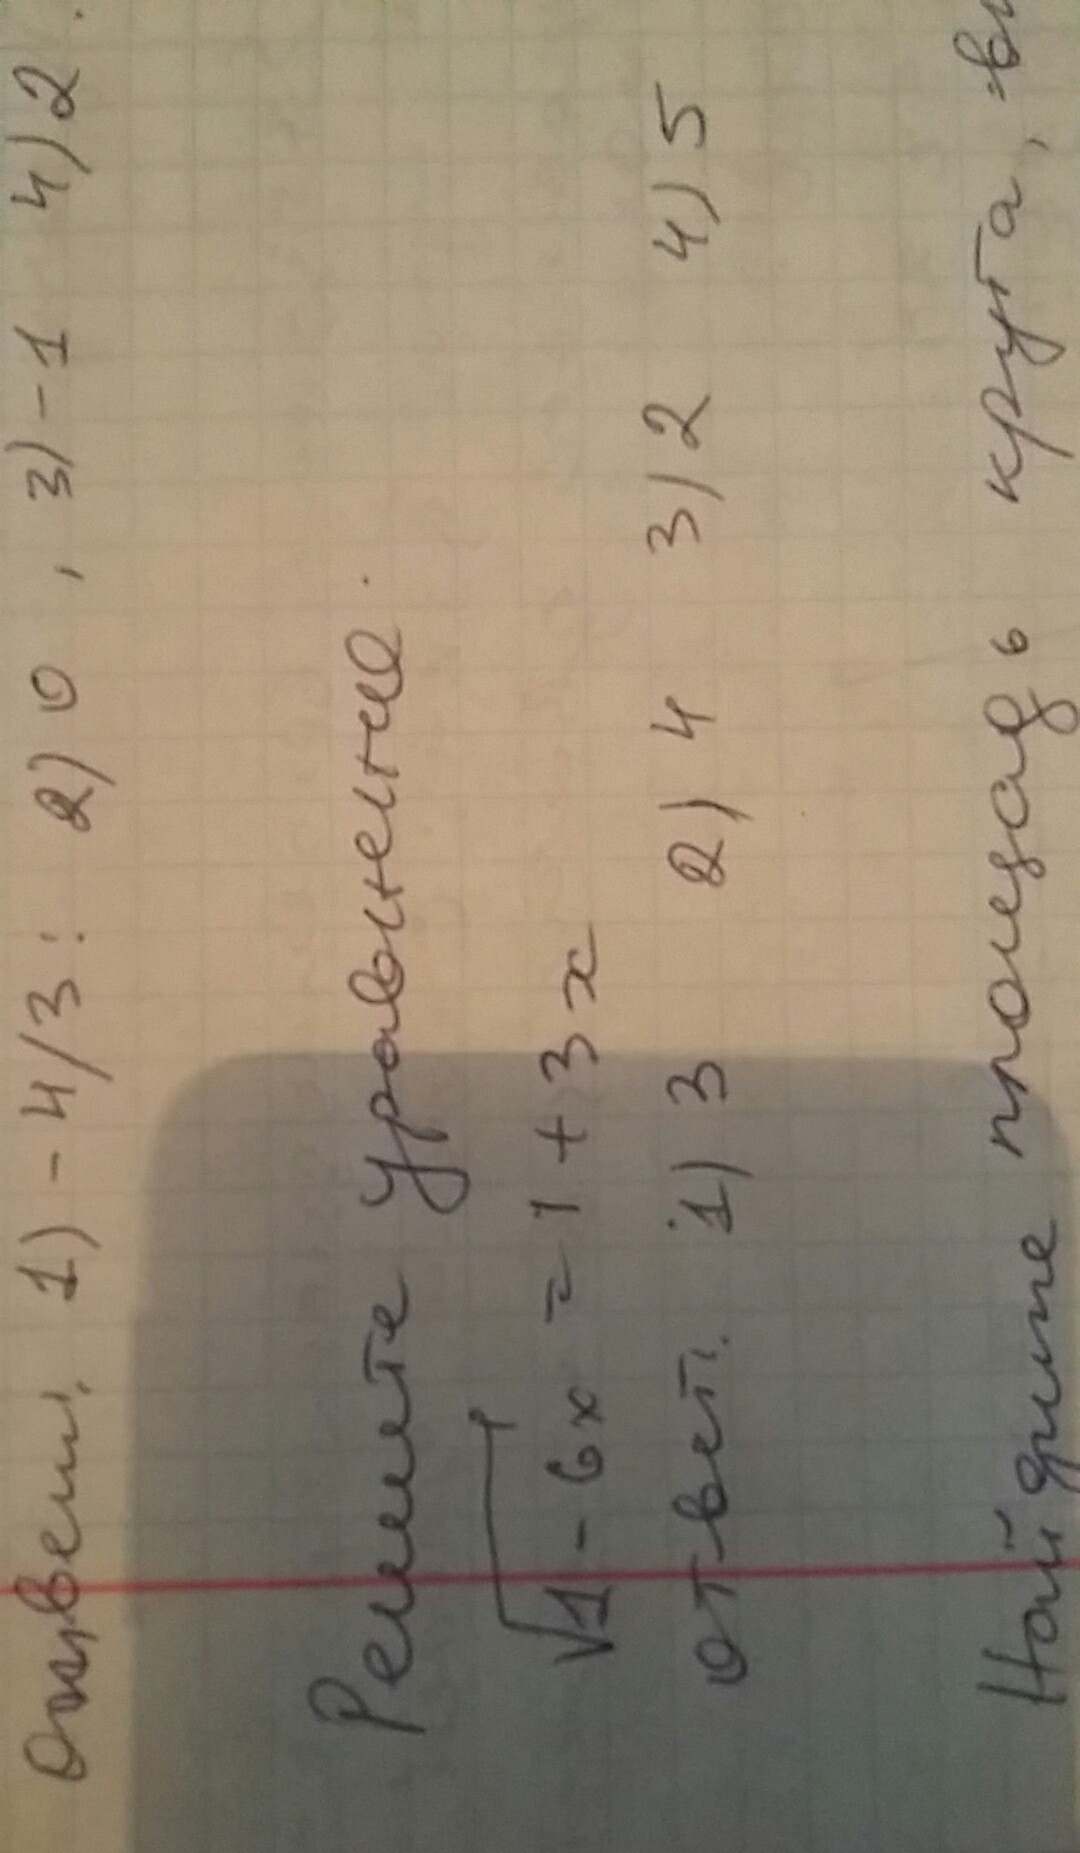 Ответ. 1) - 4/3: 2) 0 , 3) - 1 4) 2.
Решите уравнение.
√1 - 6x = 1 + 3x
ответ. 1) 3 2) 4 3) 2 4) 5
Найдите площадь круга,